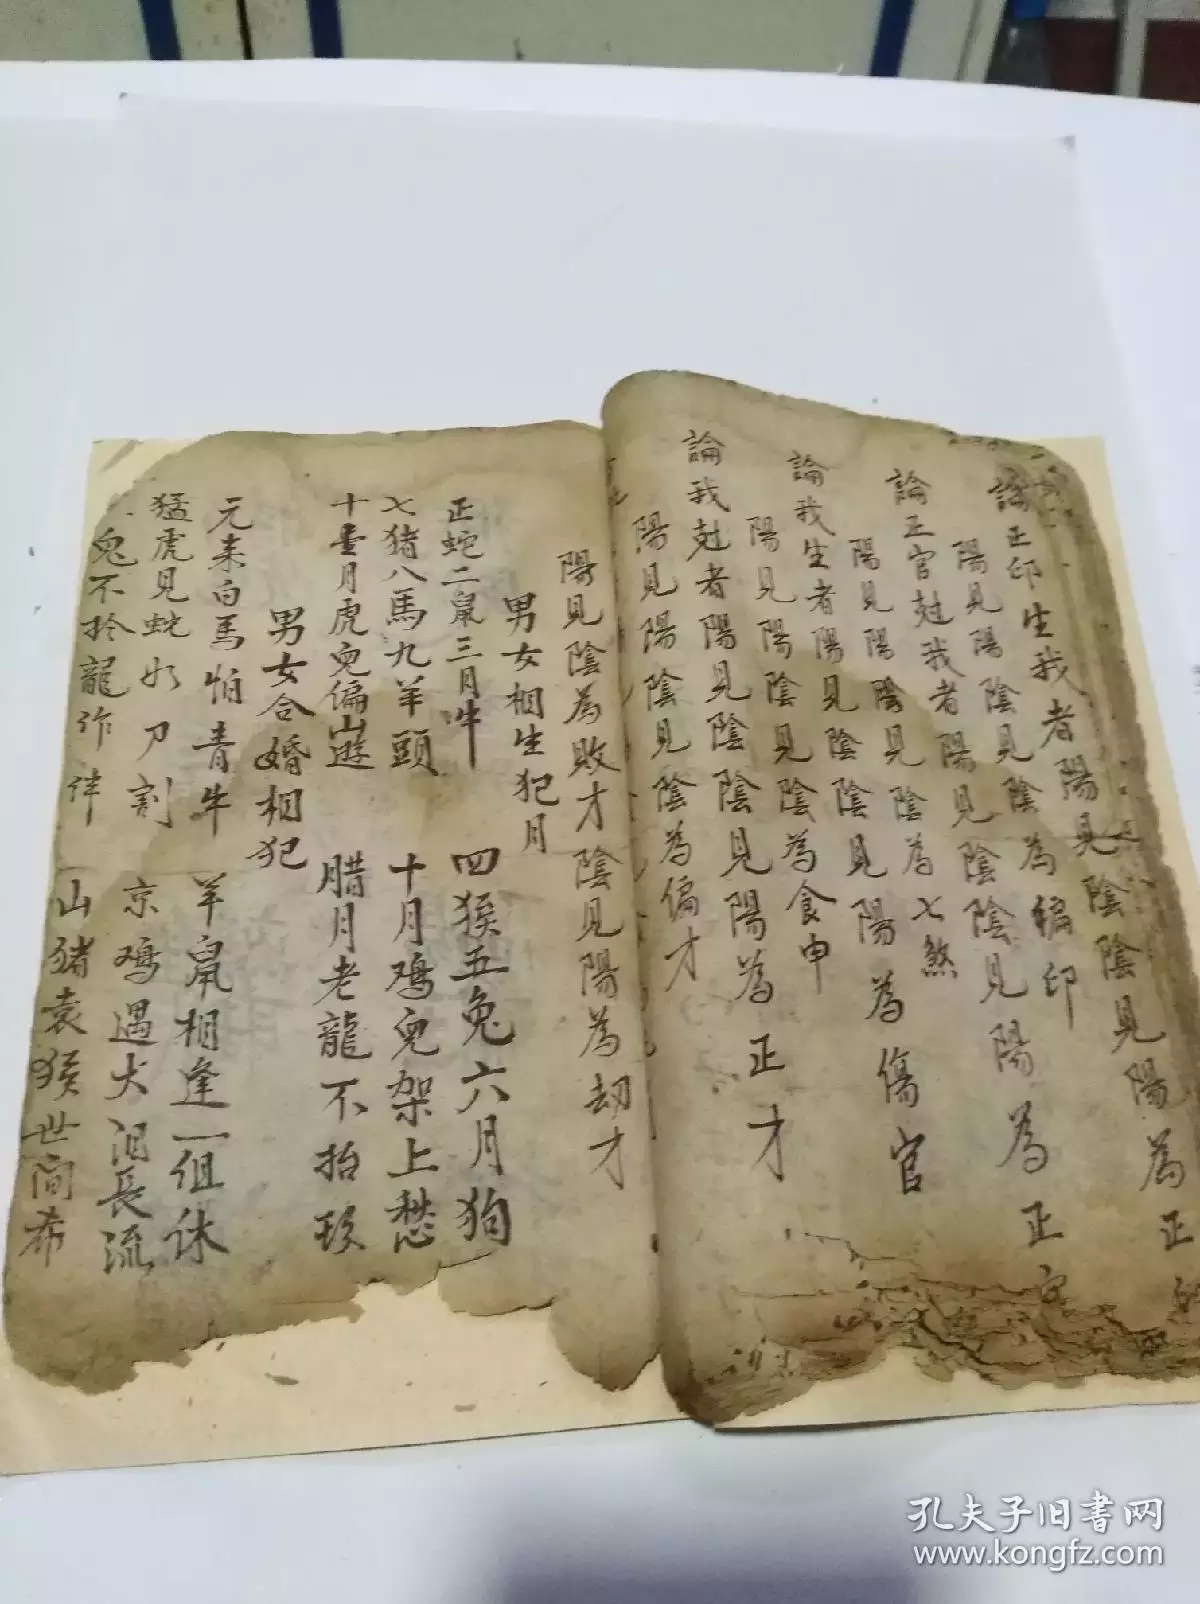 論正印生我者陽見陰陰見陽為正
陽見陽陰見陰為編印
論正官尅我者陽見陰陰見陽為正官
陽見陽陰見陰為七煞
論我生者陽見陰陰見陽為傷官
陽見陽陰見陰為食申
論我尅者陽見陰陰見陽為正才
陽見陽陰見陰為偏才
陽見陰為敗才陰見陽為劫才
男女相生犯月
正蛇二鼠三月牛 四猴五兔六月狗
七猪八馬九羊頭 十月鸡兒架上愁
十壹月虎兒偏山遊 腊月老龍不抬
男女合婚相犯
元来白馬怕青牛 羊鼠相逢一俱休
猛虎見蛇如刀割 京鸡遇犬泪長流
兔不於龍作伴 山猪袁猴世间希
孔夫子旧书网
www.kongfz.com